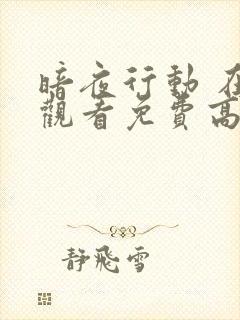 暗夜行動 在
觀看免費高
静飛雪